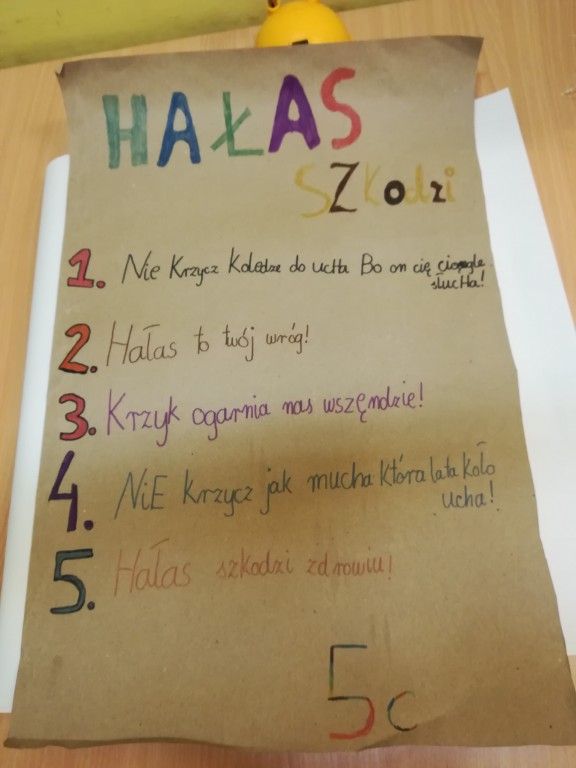 HAŁAS
SZKodzi
1. Nie Krzycz Koledze do ucHa Bo on cię ciongle
słucHa!
2. Hałas to twój wróg!
3. Krzyk ogarnia nas wszęndzie!
4. NiE krzycz jak mucha która lata koło
ucha!
5. Hałas szkodzi zdrowiu!
5c